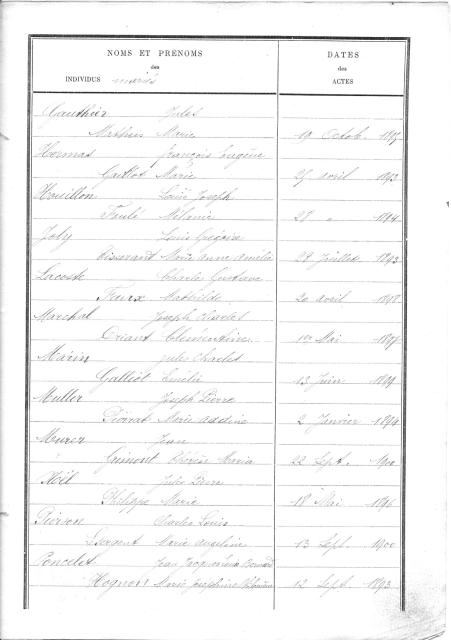 NOMS ET PRÉNOMS
des
INDIVIDUS mariés
DATES
des
ACTES
Gauthier Jules
Mathis Marie 19 Octob.
Hermas François Eugène
Gaillot Marie 25 avril 1893
Louis Joseph
Mélanie 28 " 1894
Joly Louis Grégoire
Tisserant Marie Anne Amélie 28 Juillet 1893
Lacoste Charles Gustave
Mathilde 20 avril 1898
Marchal Joseph Charles
Oriant Clémentine 1er Mai 1897
Marin Jules Charles
Galliot Emélie 13 Juin
Muller Joseph Pierre
Pierrat Marie 2 Janvier 1894
Jean
Grimont Thérèse Maria 22 Sept. 1900
Noël Jules Pierre
Philippe Marie 18 Mai 1896
Pierson Charles Louis
Lesergent Marie Angeline 13 Sept. 1900
Poncelet Jean
Hognon Marie Joséphine 12 Sept. 1893